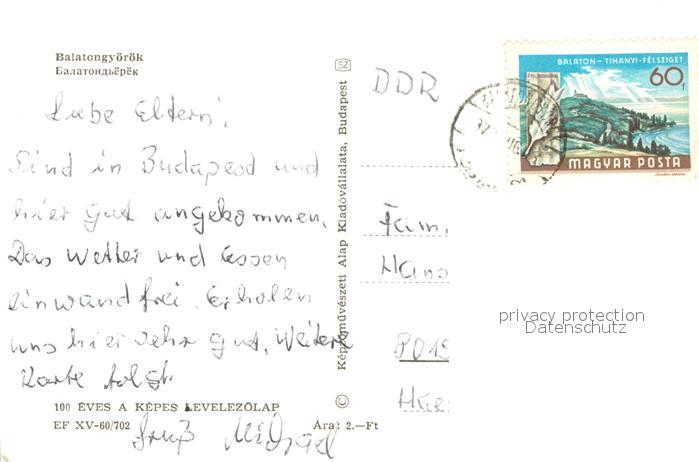 Balatongyörök
Балатондьёрёк
Liebe Eltern!
Sind in Budapest und
hier gut angekommen.
Das Wetter und Essen
einwandfrei. Erholen
uns hier sehr gut. Weitere
Karte folgt.
Gruß Michael
100 ÉVES A KÉPES LEVELEZŐLAP
EF XV-60/702
Ára: 2.—Ft
Képzőművészeti Alap Kiadóvállalata, Budapest
SZ
©
DDR
BALATON – TIHANYI-FÉLSZIGET
60f
MAGYAR POSTA
Fam.
Hans
privacy protection
Datenschutz